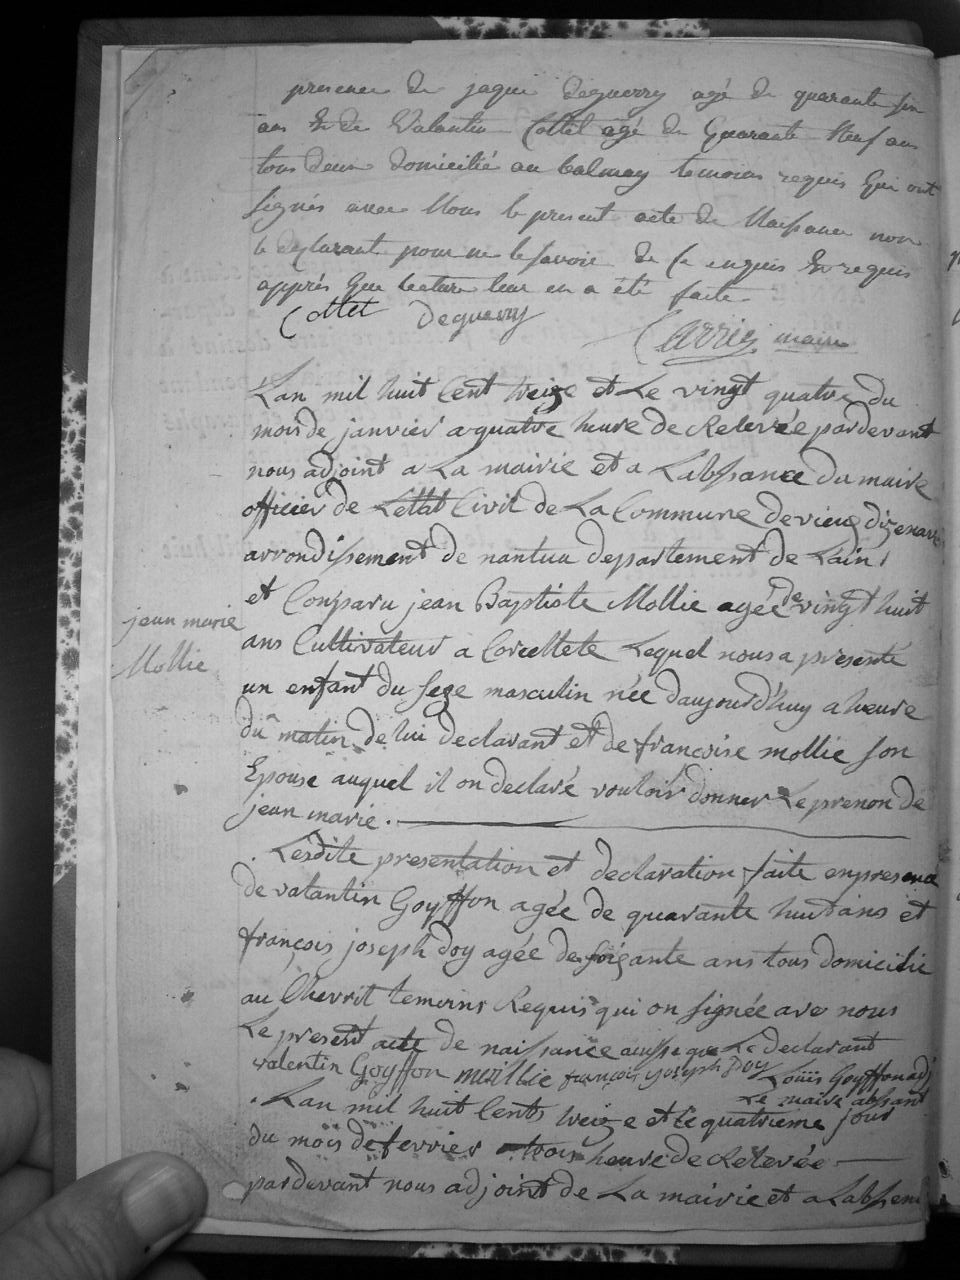 presence de jaque deguerry agé de quarante six
ans Et de Valantin Cottet agé de Quarante Neuf ans
tous deux domicilié au balmay temoins requis Qui ont
signés avec Nous le present acte de Naissance non
le declarant pour ne le savoir de ce enquis Et requis
apprés Que lecture leur en a été faite
Cottet Deguerry
Carrier maire
Lan mil huit Cent treize et Le vingt quatre du
mois de janvier a quatre heure de Relevée pardevant
nous adjoint a La mairie et a Labssance du maire
officier de Lettat Civil de La Commune de vieu dizenave
arrondissement de nantua departement de Lain
et Conparu jean Baptiste Mollie agée de vingt huit
jean marie
Mollie
ans Cultivateur a Corcellete Lequel nous a presenté
un enfant du sexe masculin née daujourd'huy a heure
du matin de lui declarant et de francoise mollie son
Epouse auquel il on declaré vouloir donner Le prenon de
jean marie.
Lesdite presentation et declaration faite enpresence
de valantin Goyffon agée de quarante huit ans et
françois joseph Doy agée de soixante ans tous domicilié
au Chevril temoins Requis qui on signée avec nous
Le present acte de naissance ausse que Le declarant
valentin Goyffon mollie françois joseph Doy Louis Goyffon adj
Le maire abssant
. Lan mil huit Cents treize et Le quatrieme jour
du mois de fevrier trois heure de Relevée
pardevant nous adjoint de La mairie et a Labssen